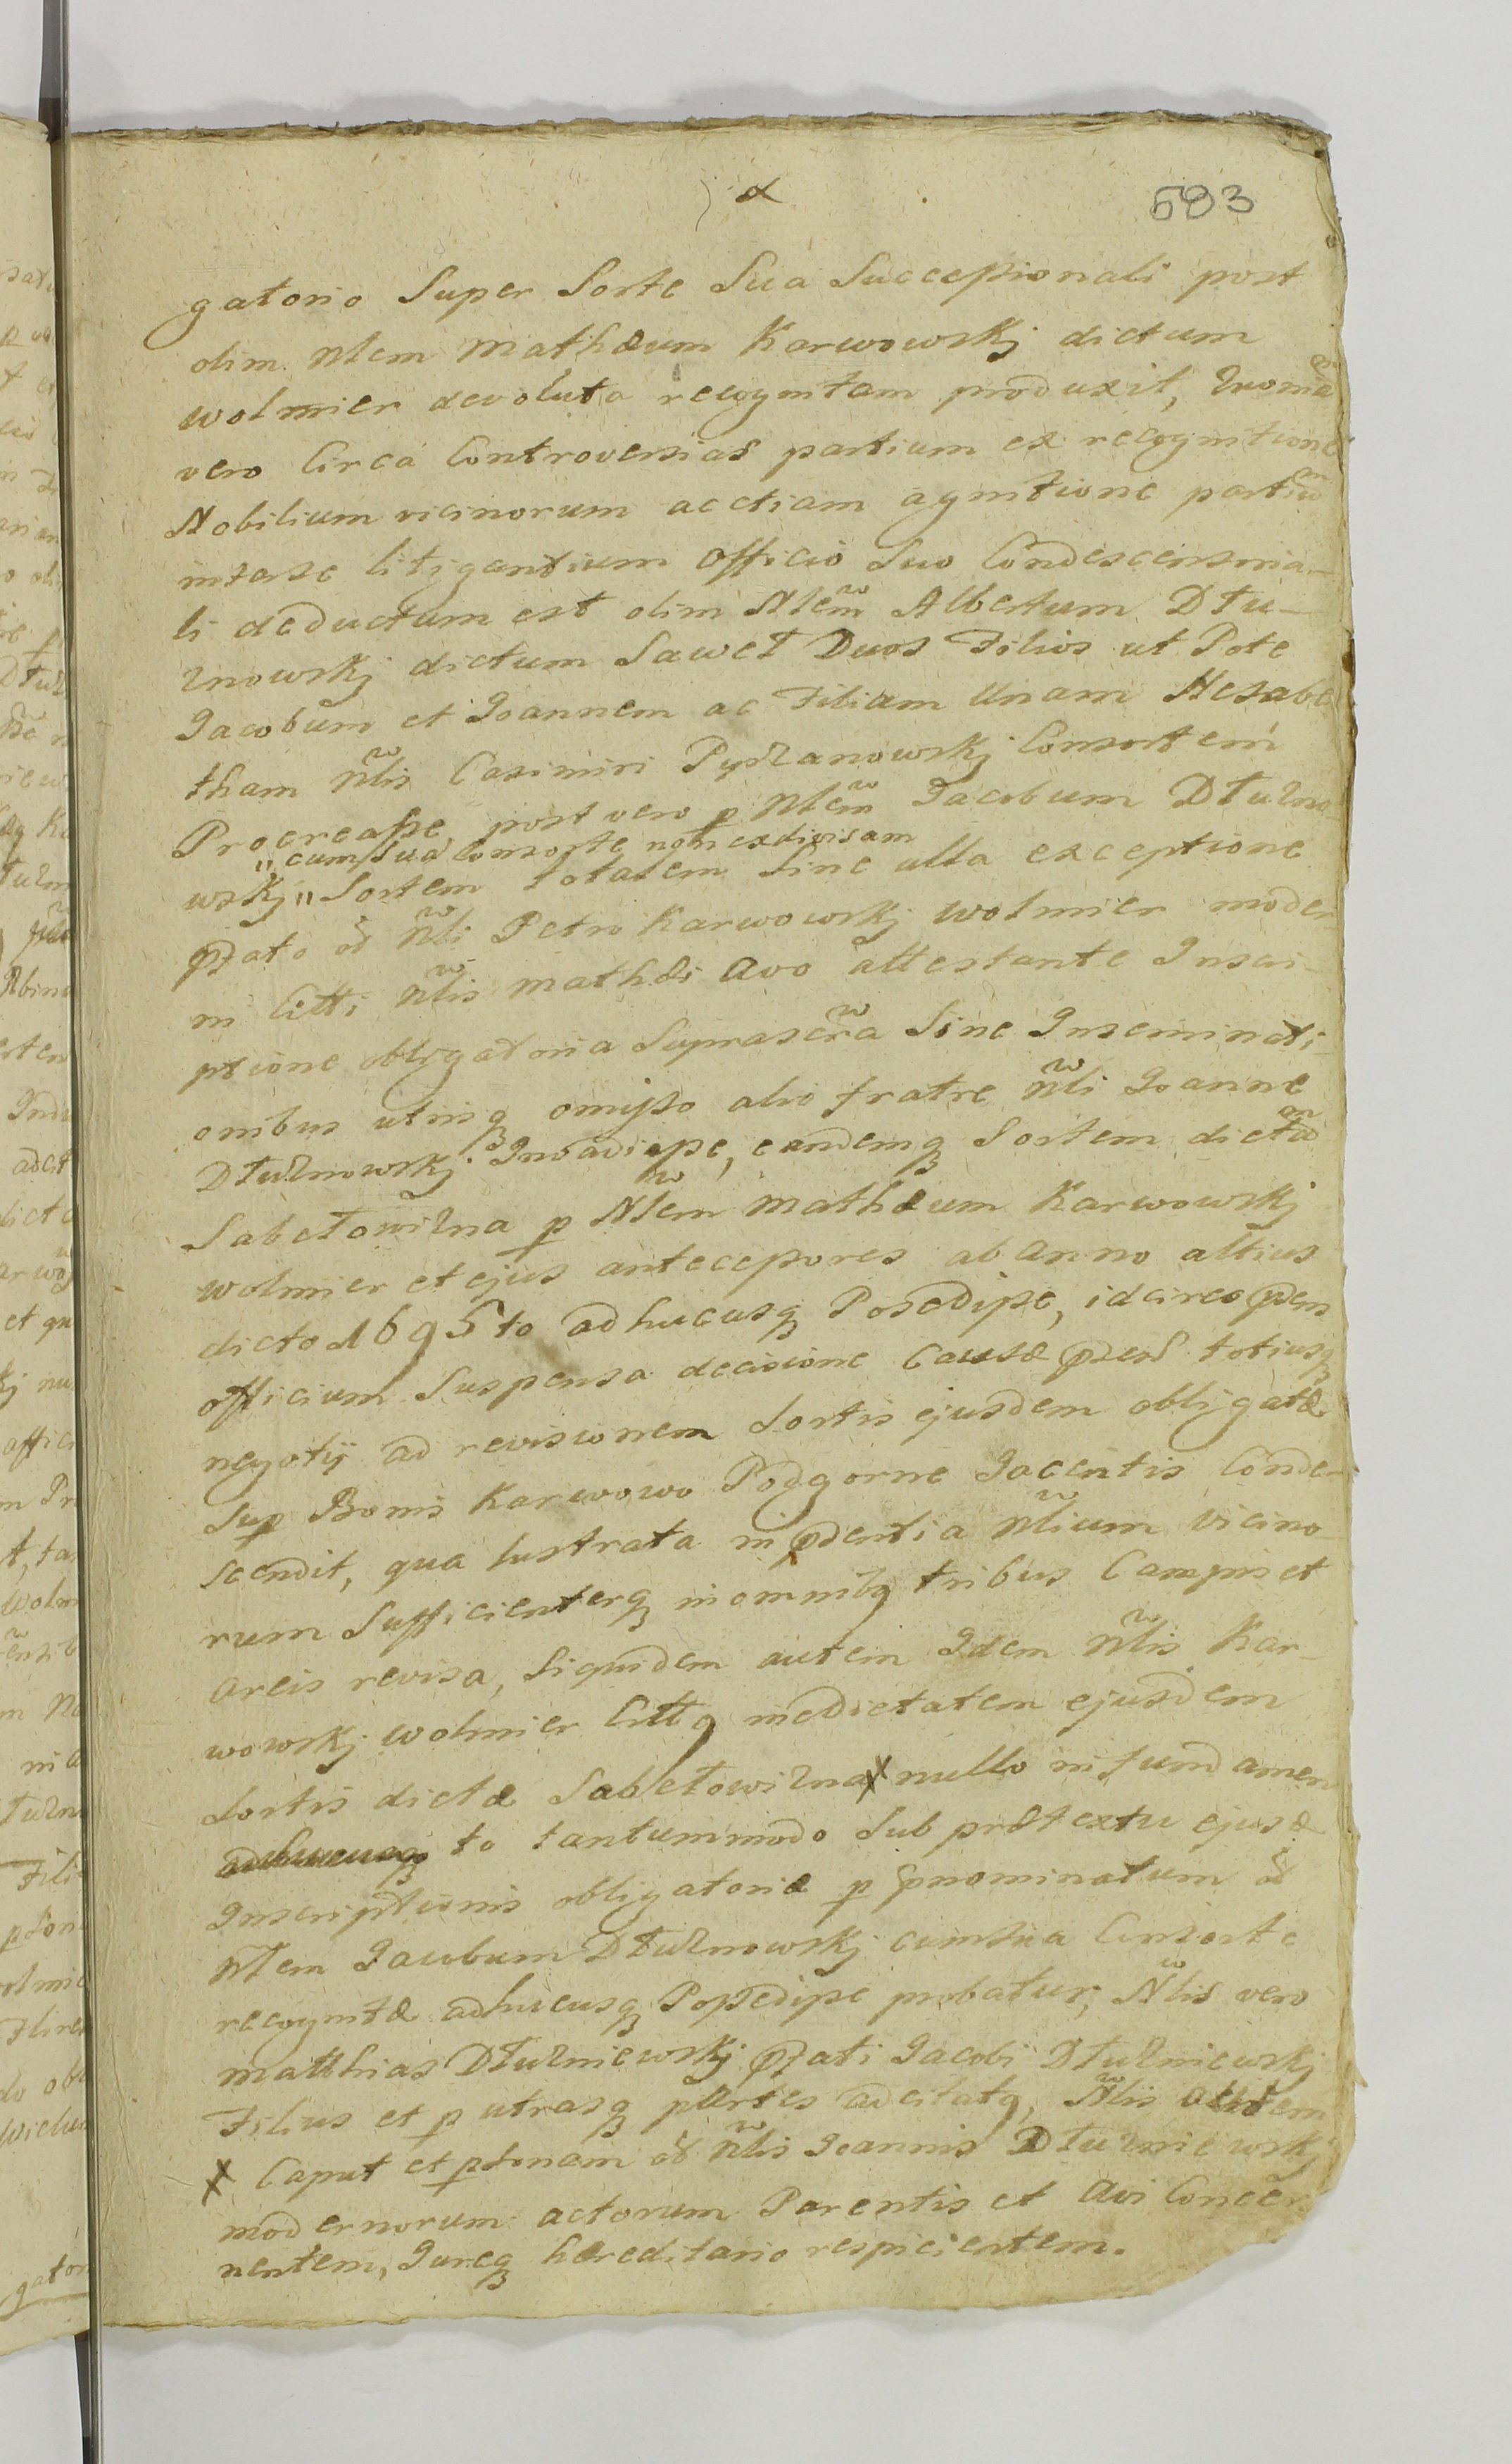 α
593
gatorio Super Sorte Sua Successionali post
olim Nlem Mathæum Karwowskj dictum
Wolmier devoluta recognitam produxit,
vero Circa Controversias partium ex recognitione
Nobilium vicinorum ac etiam agnitione partium
interse litigantium Officio Suo Condescensoria-
li deductum est olim Nlem Albertum Dłu-
znowskj dictum Saweł Duos Filios ut Pote
Jacobum et Joannem ac Filiam Unam
tham Nlis Casimiri Pyszanowskj Consortem
Procreasse, post vero p Nlem Jacobum Dłuzno
" cum Sua Consorte non exdivisam
wskj " Sortem totalem Sine ulla exceptione
pfato od Nli Petro Karwowskj Wolmier moder
ni Citti Nlis Mathæi Avo attestante Inscri-
ptione obligatoria Suprascra Sine Inseminati-
onibus utrisq omisso alio fratre Nli Joanne
Dłuznowskj Invadiasse, eandemq Sortem dictam
Sabełowizna p Nlem Mathæum Karwowskj
Wolmier et ejus antecessores ab Anno altius
dicto 1695to adhucusq Possedisse, idcirco pns
officium Suspensa decisione Causæ pnsis totiusq
negotij ad revisionem Sortis ejusdem obligatæ
Sup Bonis Karwowo Podgorne Jacentis Conde-
scendit, qua lustrata in pdentia Nlium Vicino-
rum Sufficienterq in omnibq tribus Campis et
Areis revisa, Siquidem autem Idem Nlis Kar-
wowskj Wolmier Cittq medietatem ejusdem
Sortis dictæ Sabełowizna X nullo in fundamen
adhucusq to tantummodo Sub prætextu ejusd
Inscriptionis obligatoriæ p pnominatum od
Nlem Jacobum Dłuznowskj cum Sua Consorte
recognitæ adhucusq Possedisse probatur, Nlis vero
Matthias Dłuzniewskj pfati Jacobi Dłuzniewskj
Filius et p utrasq partes adcitatq, Nlis autem
X Caput et psonam od Nlis Joannis Dłuzniewskj
modernorum actorum Parentis et Avi Concer
nentem, Jureq hæreditario respicientem.